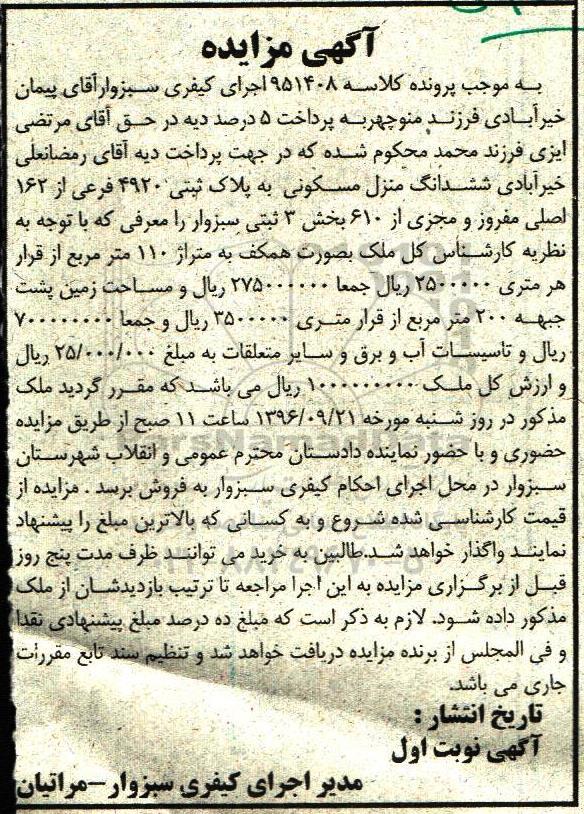 آگهی مزایده
به موجب پرونده کلاسه ۹۵۱۴۰۸ اجرای کیفری سبزوارآقای پیمان
خیرآبادی فرزند منوچهربه پرداخت ۵ درصد دیه در حق آقای مرتضی
ایزی فرزند محمد محکوم شده که در جهت پرداخت دیه آقای رمضانعلی
خیرآبادی ششدانگ منزل مسکونی به پلاک ثبتی ۴۹۲۰ فرعی از ۱۶۲
اصلی مفروز و مجزی از ۶۱۰ بخش ۳ ثبتی سبزوار را معرفی که با توجه به
نظریه کارشناس کل ملک بصورت همکف به متراژ ۱۱۰ متر مربع از قرار
هر متری ۲۵۰۰۰۰۰ ریال جمعا ۲۷۵۰۰۰۰۰۰ ریال و مساحت زمین پشت
جبهه ۲۰۰ متر مربع از قرار متری ۳۵۰۰۰۰۰ ریال و جمعا ۷۰۰۰۰۰۰۰۰
ریال و تاسیسات آب و برق و سایر متعلقات به مبلغ ۲۵/۰۰۰/۰۰۰ ریال
و ارزش کل ملک ۱۰۰۰۰۰۰۰۰۰ ریال می باشد که مقرر گردید ملک
مذکور در روز شنبه مورخه ۱۳۹۶/۰۹/۲۱ ساعت ۱۱ صبح از طریق مزایده
حضوری و با حضور نماینده دادستان محترم عمومی و انقلاب شهرستان
سبزوار در محل اجرای احکام کیفری سبزوار به فروش برسد . مزایده از
قیمت کارشناسی شده شروع و به کسانی که بالاترین مبلغ را پیشنهاد
نمایند واگذار خواهد شد.طالبین به خرید می توانند ظرف مدت پنج روز
قبل از برگزاری مزایده به این اجرا مراجعه تا ترتیب بازدیدشان از ملک
مذکور داده شود. لازم به ذکر است که مبلغ ده درصد مبلغ پیشنهادی نقدا
و فی المجلس از برنده مزایده دریافت خواهد شد و تنظیم سند تابع مقررات
جاری می باشد.
تاریخ انتشار :
آگهی نوبت اول
مدیر اجرای کیفری سبزوار-مراتیان